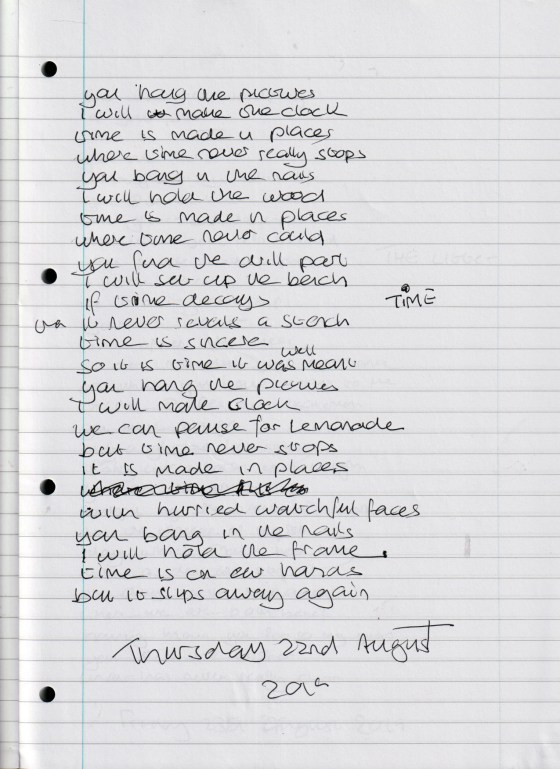 you hang the pictures
I will make the clock
time is made in places
where time never really stops
you bang in the nails
I will hold the wood
time is made in places
where time never could
you find the drill part
I will set up the bench
if time decays
TIME
it never reveals a stench
time is sincere
well
so it is time it was meant
you hang the pictures
I will make clock
we can pause for lemonade
but time never stops
it is made in places
with hurried watchful faces
you bang in the nails
I will hold the frame.
time is on our hands
but it slips away again
Thursday 22nd August